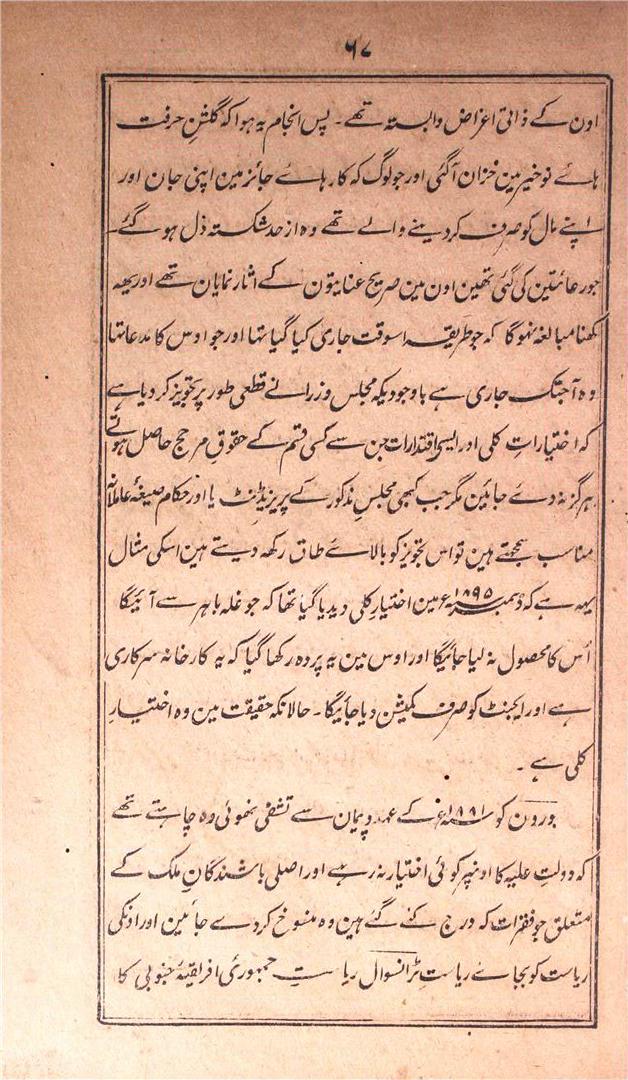 ۶۷
اون کے ذاتی اغراض وابستہ تھے۔ پس انجام یہ ہوا کہ گلشنِ حرفت
ہائے نوخیز مین خزان آگئی اور جو لوگ کہ کارہائے جائز مین اپنی جان اور
اپنے مال کو صرف کردینے والے تھے وہ از حد شکستہ دل ہو گئے۔
جو رعائتین کی گئی تھین اون مین صریح عنایتون کے آثار نمایان تھے اور یھہ
لکھنا مبالغہ نہوگا کہ جو طریقہ اسوقت جاری کیا گیا تہا اور جو اوس کا مدعا تہا
وہ آجتک جاری ہے باوجودیکہ مجلس وزرا نے قطعی طور پر تجویز کر دیا ہے
کہ اختیاراتِ کلی اور ایسی اقتدارات جن سے کسی قسم کے حقوقِ مرجح حاصل ہوتے
ہرگز نہ دے جائین مگر جب کبھی مجلسِ مذکور کے پریزیڈنٹ یا اور حکام صیغۂ عاملانہ
مناسب سمجھتے ہین تو اس تجویز کو بالائے طاق رکھہ دیتے ہین اسکی مثال
یہہ ہے کہ دسمبر ۱۸۹۵ء مین اختیارِ کلی دیدیا گیا تھا کہ جو غلہ باہر سے آئیگا
اُس کا محصول نہ لیا جائیگا اور اوس مین یہ پردہ رکھا گیا کہ یہ کارخانہ سرکاری
ہے اور ایجنٹ کو صرف کمیشن دیا جائیگا۔ حالانکہ حقیقت مین وہ اختیارِ
کلی ہے۔
بورون کو ۱۸۸۱ء کے عہد و پیمان سے تشفی نھوئی وہ چاہتے تھے
کہ دولتِ علیہ کا اونپر کوئی اختیار نہ رہے اور اصلی باشندگانِ ملک کے
متعلق جو فقرات کہ درج کئے گئے ہین وہ منسوخ کر دے جائین اور اونکی
ریاست کو بجائے ریاست ٹرانسوال ریاستِ جمہوری افریقیۂ جنوبی کا